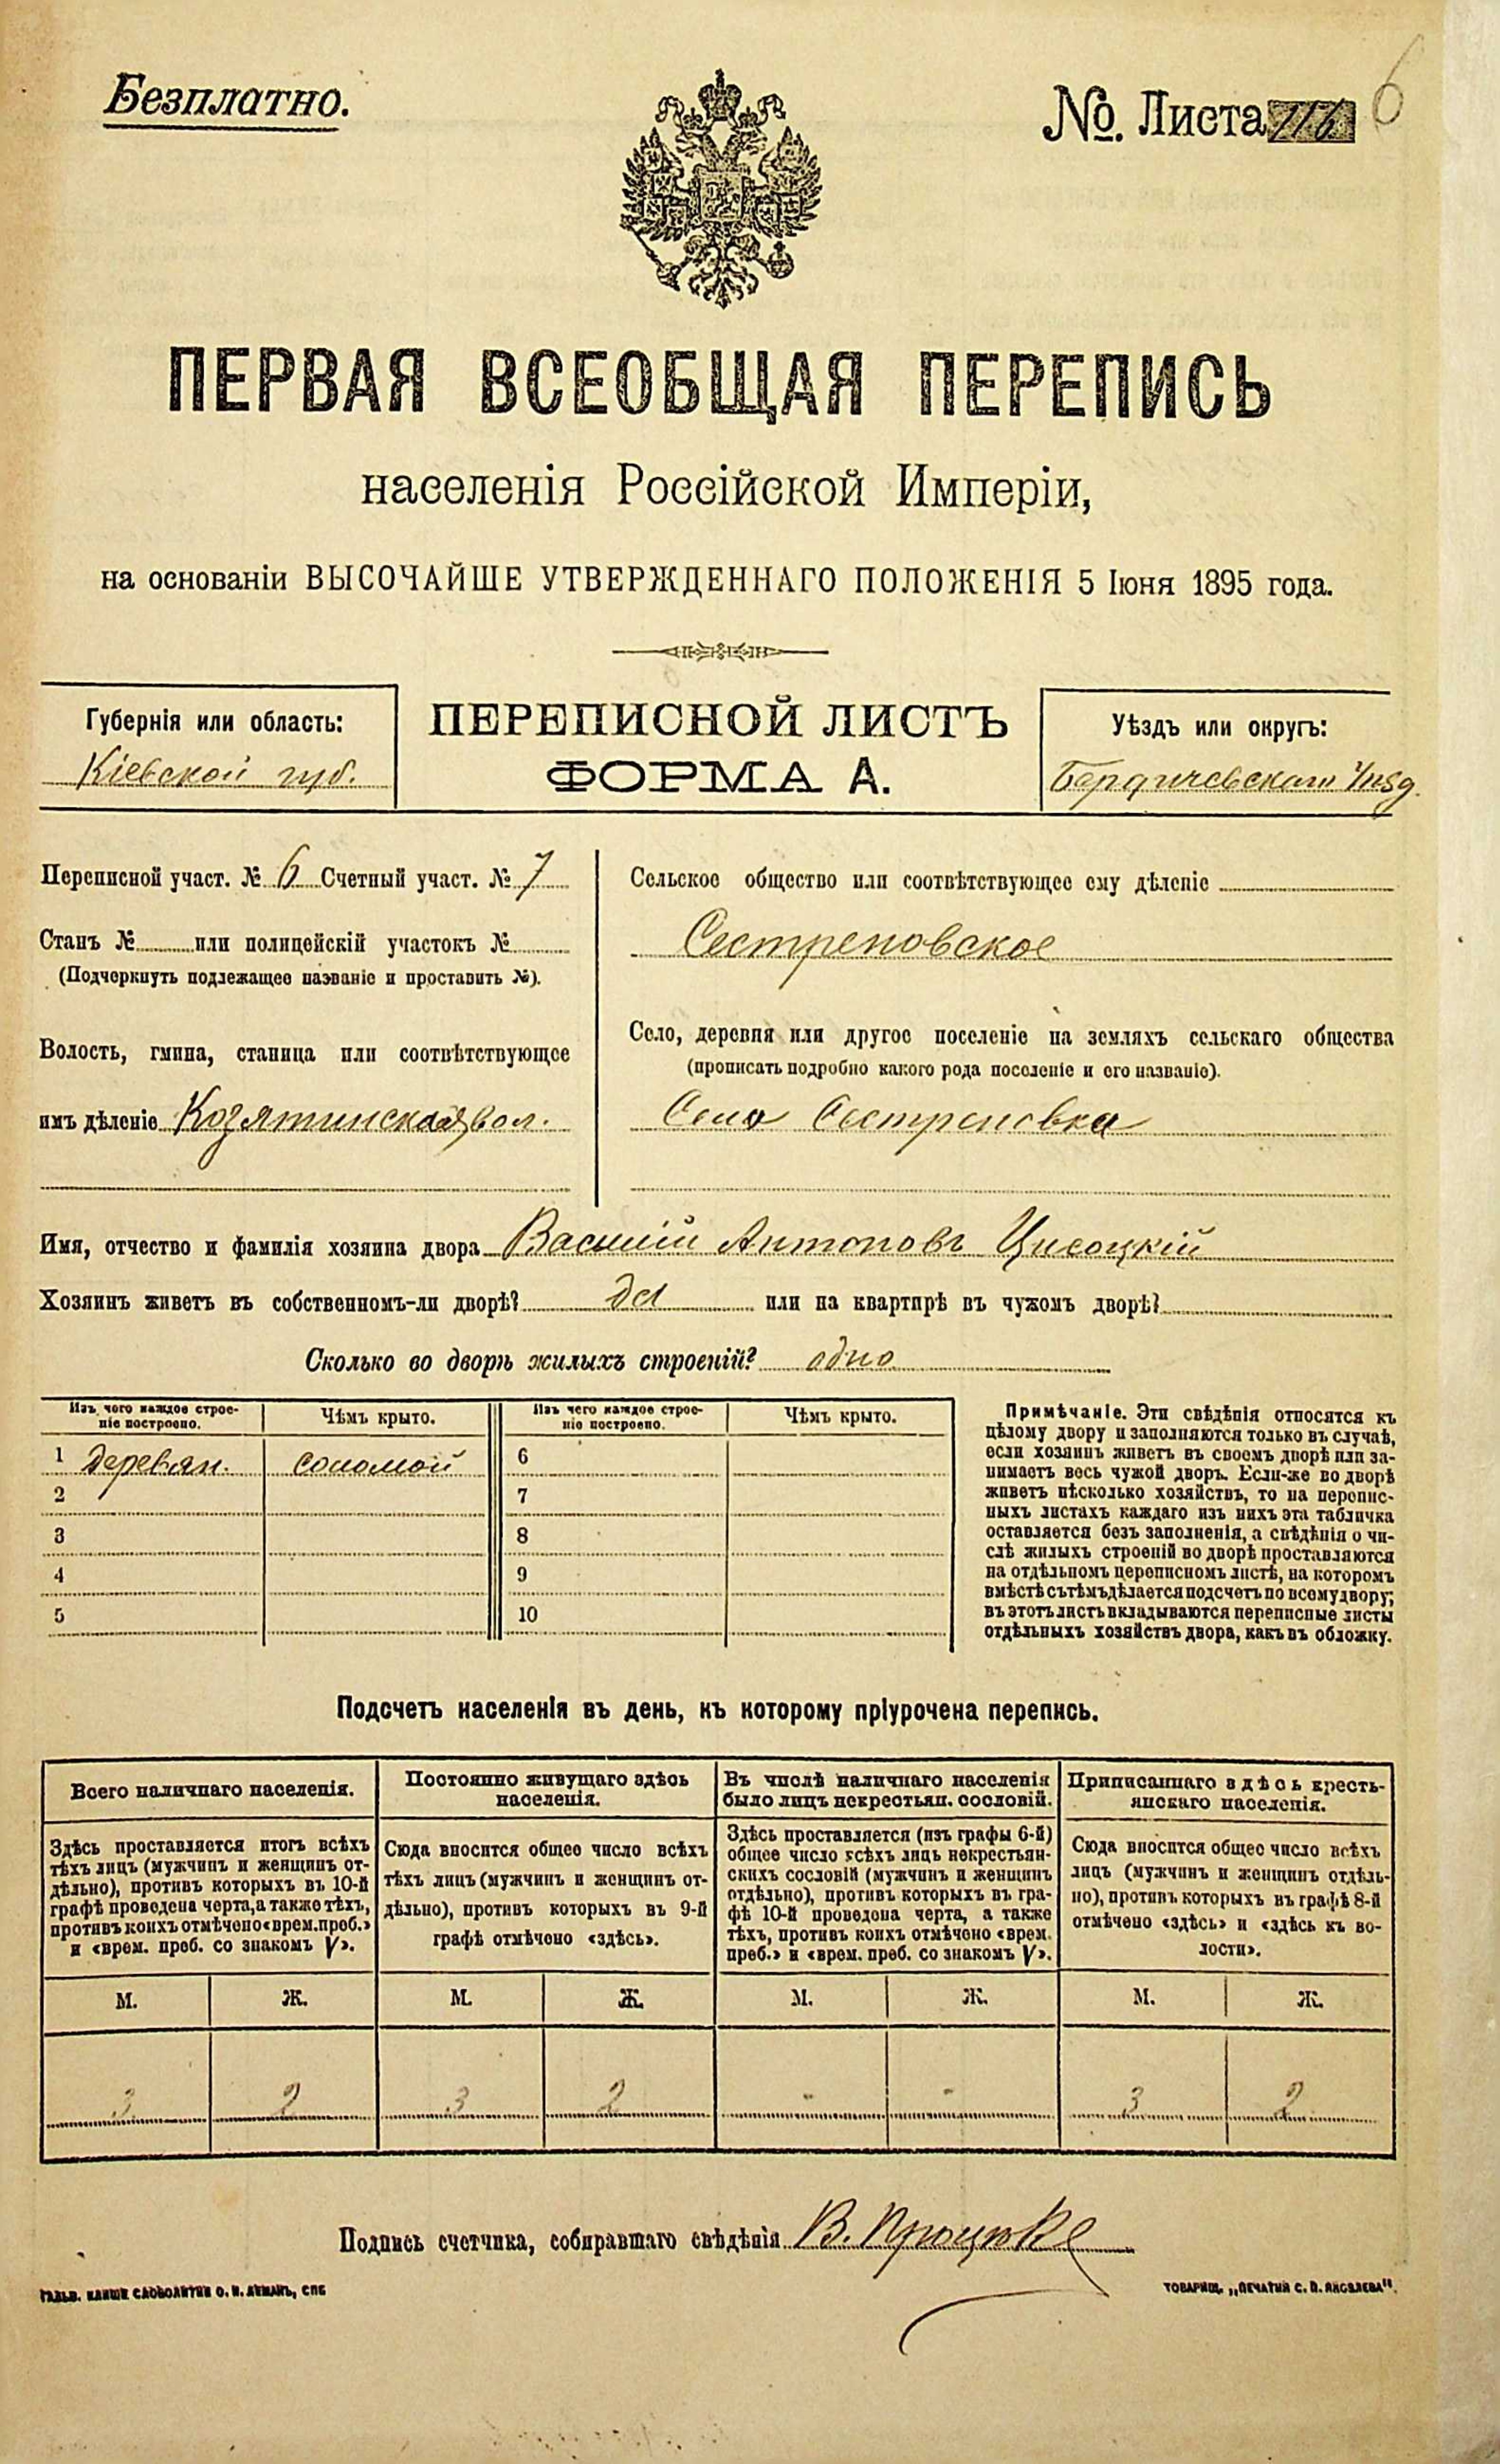 Безплатно.
№. Листа 116 6
ПЕРВАЯ ВСЕОБЩАЯ ПЕРЕПИСЬ
населенія Россійской Имперіи,
на основаніи ВЫСОЧАЙШЕ УТВЕРЖДЕННАГО ПОЛОЖЕНІЯ 5 Іюня 1895 года.
Губернія или область:
Кіевской губ.
ПЕРЕПИСНОЙ ЛИСТЪ
ФОРМА А.
Уѣздъ или округъ:
Бердичевскаго Уѣзд.
Переписной участ. № 6 Счетный участ. № 7
Станъ № или полицейскій участокъ №
(Подчеркнуть подлежащее названіе и проставить №).
Волость, гмина, станица или соотвѣтствующее
имъ дѣленіе Козятинская вол.
Сельское общество или соотвѣтствующее ему дѣленіе
Сестреновское
Село, деревня или другое поселеніе на земляхъ сельскаго общества
(прописать подробно какого рода поселеніе и его названіе).
Село Сестреновка
Имя, отчество и фамилія хозяина двора Василій Антоновъ Цисоцкій
Хозяинъ живетъ въ собственномъ-ли дворѣ? да или на квартирѣ въ чужомъ дворѣ?
Сколько во дворѣ жилыхъ строеній? одно
Изъ чего каждое строе-
ніе построено.
Чѣмъ крыто.
Изъ чего каждое строе-
ніе построено.
Чѣмъ крыто.
1 деревян. соломой 6
2 7
3 8
4 9
5 10
Примѣчаніе. Эти свѣдѣнія относятся къ
цѣлому двору и заполняются только въ случаѣ,
если хозяинъ живетъ въ своемъ дворѣ или за-
нимаетъ весь чужой дворъ. Если-же во дворѣ
живетъ нѣсколько хозяйствъ, то на перепис-
ныхъ листахъ каждаго изъ нихъ эта табличка
оставляется безъ заполненія, а свѣдѣнія о чи-
слѣ жилыхъ строеній во дворѣ проставляются
на отдѣльномъ переписномъ листѣ, на которомъ
вмѣстѣ съ тѣмъ дѣлается подсчетъ по всему двору;
въ этотъ листъ вкладываются переписные листы
отдѣльныхъ хозяйствъ двора, какъ въ обложку.
Подсчетъ населенія въ день, къ которому пріурочена перепись.
Всего наличнаго населенія.
Здѣсь проставляется итогъ всѣхъ
тѣхъ лицъ (мужчинъ и женщинъ от-
дѣльно), противъ которыхъ въ 10-й
графѣ проведена черта, а также тѣхъ,
противъ коихъ отмѣчено «врем. преб.»
и «врем. преб. со знакомъ V».
Постоянно живущаго здѣсь
населенія.
Сюда вносится общее число всѣхъ
тѣхъ лицъ (мужчинъ и женщинъ от-
дѣльно), противъ которыхъ въ 9-й
графѣ отмѣчено «здѣсь».
Въ числѣ наличнаго населенія
было лицъ некрестьян. сословій.
Здѣсь проставляется (изъ графы 6-й)
общее число всѣхъ лицъ некрестьян-
скихъ сословій (мужчинъ и женщинъ
отдѣльно), противъ которыхъ въ гра-
фѣ 10-й проведена черта, а также
тѣхъ, противъ коихъ отмѣчено «врем.
преб.» и «врем. преб. со знакомъ V».
Приписаннаго здѣсь кресть-
янскаго населенія.
Сюда вносится общее число всѣхъ
лицъ (мужчинъ и женщинъ отдѣль-
но), противъ которыхъ въ графѣ 8-й
отмѣчено «здѣсь» и «здѣсь къ во-
лости».
М. Ж. М. Ж. М. Ж. М. Ж.
3 2 3 2 - - 3 2
Подпись счетчика, собиравшаго свѣдѣнія В. Процюке
ГАЛЬВ. КЛИШЕ СЛОВОЛИТНИ О. И. ЛЕМАНЪ, СПБ
ТОВАРИЩ. „ПЕЧАТНЯ С. П. ЯКОВЛЕВА".